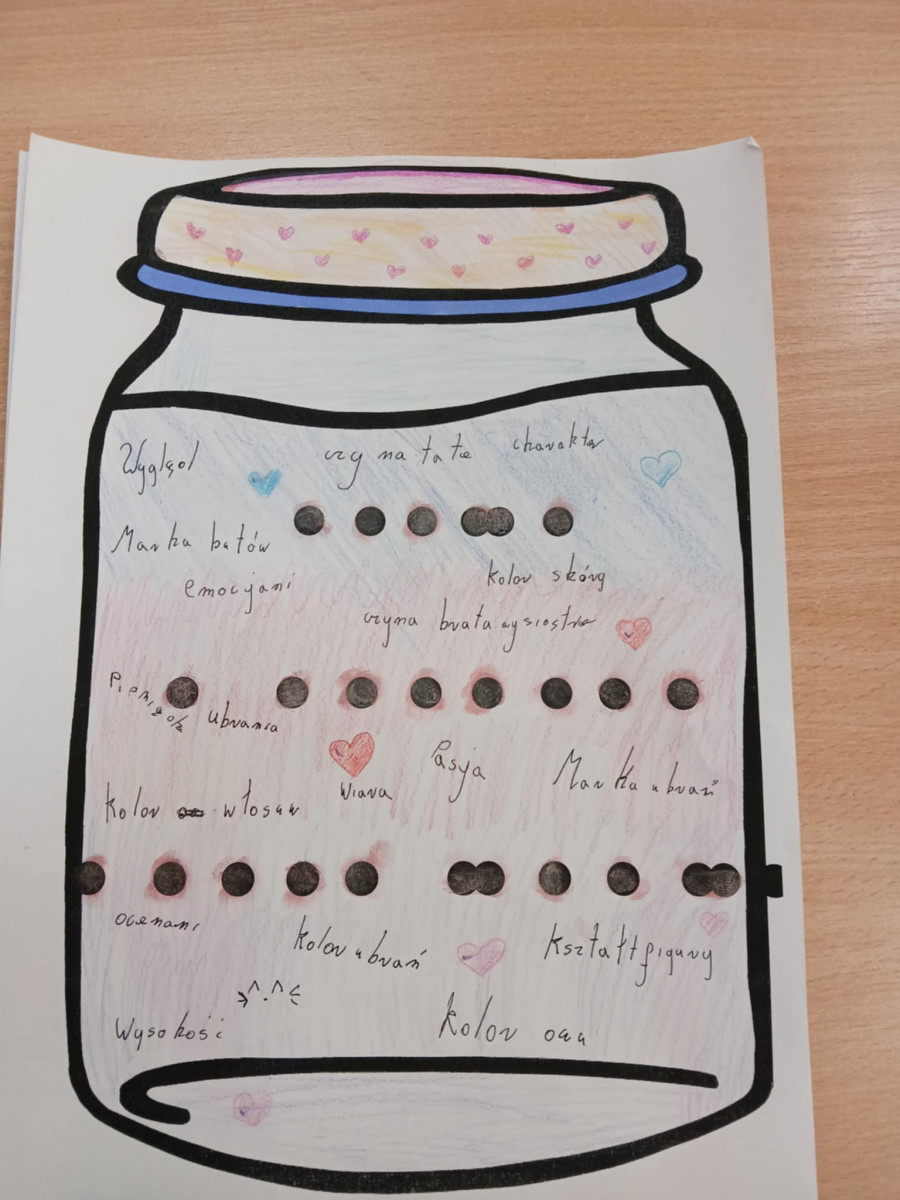 Wygląd
czy ma tatę
charakter
Marka butów
emocjami
kolor skóry
czy ma brata czy siostrę
Pieniądze
ubrania
Pasja
Marka ubrań
Wiara
kolor włosuw
ocenami
kolor ubrań
kształt figury
Wysokość
kolor oczu